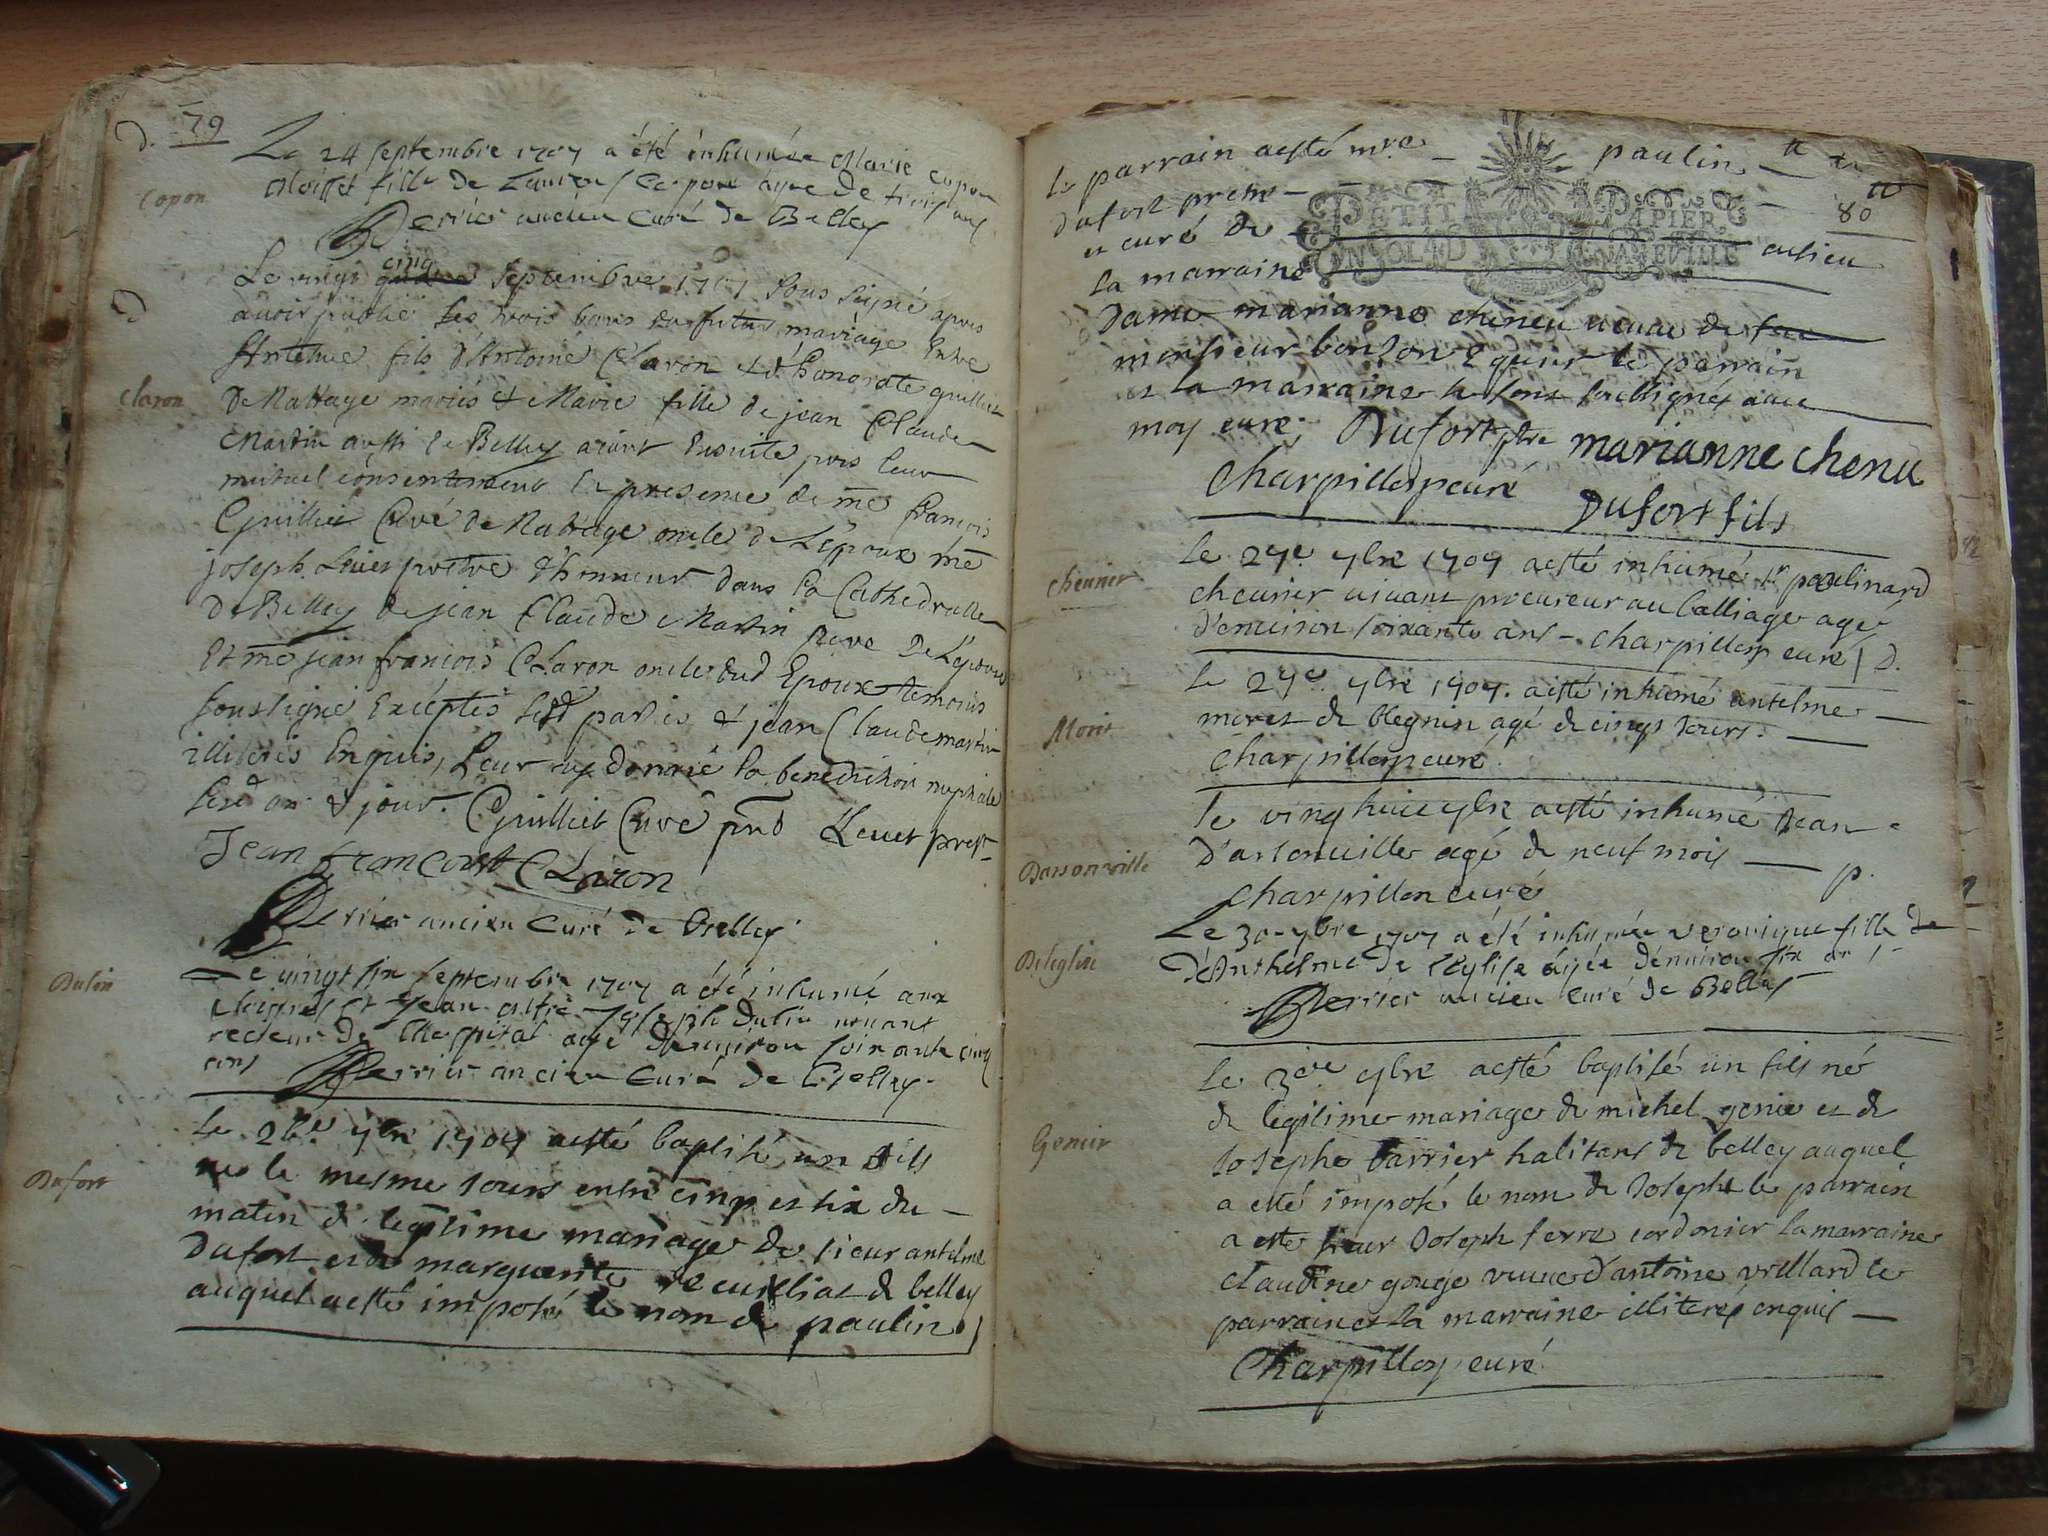 D. 79
Copon
Le 24 septembre 1707 a été inhumée Marie copon
fille de Copon agee de trois ans
Perrier ancien curé de Belley
D
Claron
Le vingt cinq septembre 1707 sous signé apres
avoir publié les trois bans du futur mariage Entre
Antelme fils d'Antoine Claron & d'honorate guilliet
De Nattage mariés & Marie fille de jean Claude
Martin aussi de Belley aiant Ensuite pris leur
mutuel consentement En presence de mre francois
Guilliet Curé de Nattage oncle de L'epoux mre
joseph Levet prêtre d'honneur dans la Cathedralle
De Belley de jean Claude Martin pere De L'epouse
Et mre jean francois Claron oncle dud Epoux temoins
soussigné Exceptés lesd parties & jean Claude martin
illiterés Enquis, Leur ay donné la benediction nuptiale
lesd an & jour. Guilliet Curé pnt Levet prest
Jean francois Claron
Perrier ancien curé de Belley
Dulin
Le vingt six septembre 1707 a été inhumé aux
Jean Joseph Dulin vivant
recteur de l'hospital agé d'environ soixante cinq
ans Perrier ancien curé de Belley
Dufort
Le 26e 7bre 1707 a esté baptisé un fils
né le mesme jours entre cinq et six du
matin de legitime mariage de sieur antelme
Dufort et de marguerite recuilliat de belley
auquel a esté imposé le nom de paulin
80
le parrain a esté mre paulin
dufort pretre
et curé de aulieu
la marraine
PETIT PAPIER
Dame marianne cheneu veuve de feu
monsieur bonson Equier le parrain
et la marraine se sont soubsignés avec
moy curé. Dufort ptre marianne chenu
Charpilloz curé Dufort fils
chevrier
le 27e 7bre 1707 a esté inhumé sr paulinard
chevrier vivant procureur au balliage agé
d'environ soixante ans - charpilloz curé D.
Moret
le 27e 7bre 1707. a esté inhumé antelme
moret de blegnin agé de cinq jours.
Charpilloz curé
Darsonville
le ving huict 7bre a esté inhumé Jean
d'arsonville agé de neuf mois p.
Charpilloz curé
Deleglise
Le 30 7bre 1707 a été inhumée veronique fille de
d'Anthelme de l'Eglise agée d'environ six ans
Perrier ancien curé de Belley
Genier
Le 30e 7bre a esté baptisé un fils né
de legitime mariage de michel genier et de
Josephe barrier habitans de belley auquel
a esté imposé le nom de Joseph le parrain
a esté sieur Joseph serre cordonier la marraine
claudine gouge veuve d'antoine vrillard le
parrain et la marraine illiterés enquis
Charpilloz curé